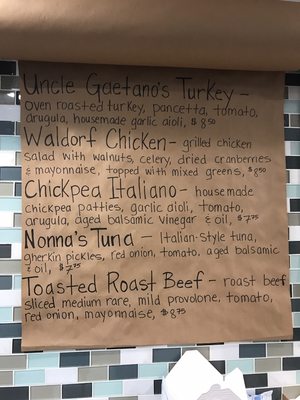 Uncle Gaetano's Turkey –
oven roasted turkey, pancetta, tomato,
arugula, housemade garlic aioli, $8.50
Waldorf Chicken – grilled chicken
salad with walnuts, celery, dried cranberries
& mayonnaise, topped with mixed greens, $8.50
Chickpea Italiano – housemade
chickpea patties, garlic aioli, tomato,
arugula, aged balsamic vinegar & oil, $7.75
Nonna's Tuna – Italian-style tuna,
gherkin pickles, red onion, tomato, aged balsamic
& oil, $7.75
Toasted Roast Beef – roast beef
sliced medium rare, mild provolone, tomato,
red onion, mayonnaise, $8.75